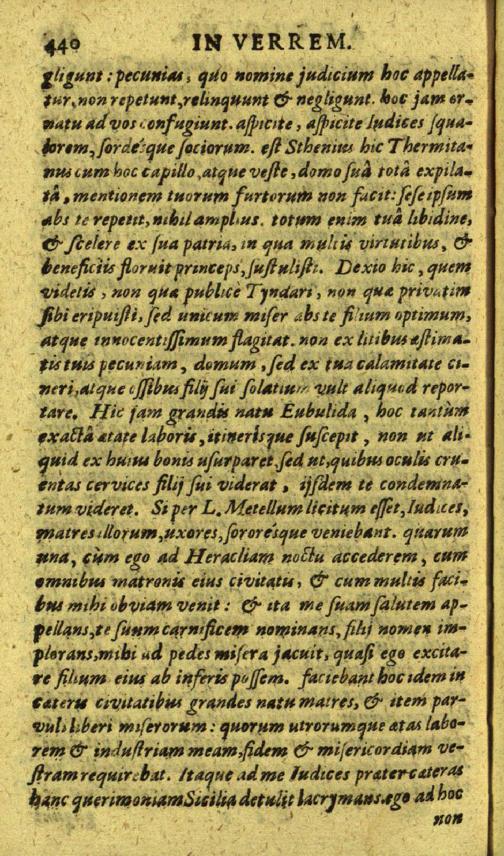 440 IN VERREM.
gligunt : pecunias, quo nomine judicium hoc appella-
tur, non repetunt, relinquunt & negligunt. hoc jam or-
natu ad vos confugiunt. aspicite, aspicite Iudices squa-
lorem, sordesque sociorum. est Sthenius hic Thermita-
nus cum hoc capillo, atque veste, domo suâ totâ expila-
tâ, mentionem tuorum furtorum non facit: sese ipsum
abs te repetit, nihil amplius. totum enim tuâ libidine,
& scelere ex sua patria, in qua multis virtutibus, &
beneficiis floruit princeps, sustulisti. Dexio hic, quem
videtis, non quæ publicè Tyndari, non quæ privatim
sibi eripuisti, sed unicum miser abs te filium optimum,
atque innocentissimum flagitat. non ex litibus æstima-
tis tuis pecuniam, domum, sed ex tua calamitate ci-
neri, atque ossibus filij sui solatium vult aliquod repor-
tare. Hic jam grandis natu Eubulida, hoc tantùm
exactâ ætate laboris, itinerisque suscepit, non ut ali-
quid ex huius bonis usurparet, sed ut, quibus oculis cru-
entas cervices filij sui viderat, ijsdem te condemna-
tum videret. Si per L. Metellum licitum esset, Iudices,
matres illorum, uxores, sororésque veniebant. quarum
una, cùm ego ad Heracliam noctu accederem, cum
omnibus matronis eius civitatis, & cum multis faci-
bus mihi obviam venit: & ita me suam salutem ap-
pellans, te suum carnificem nominans, filij nomen im-
plorans, mihi ad pedes misera jacuit, quasi ego excita-
re filium eius ab inferis possem. faciebant hoc idem in
cæteris civitatibus grandes natu matres, & item par-
vuli liberi miserorum: quorum utrorumque ætas labo-
rem & industriam meam, fidem & misericordiam ve-
stram requirebat. Itaque ad me Iudices præter cæteras
hanc querimoniam Sicilia detulit lacrymans. ego ad hoc
non